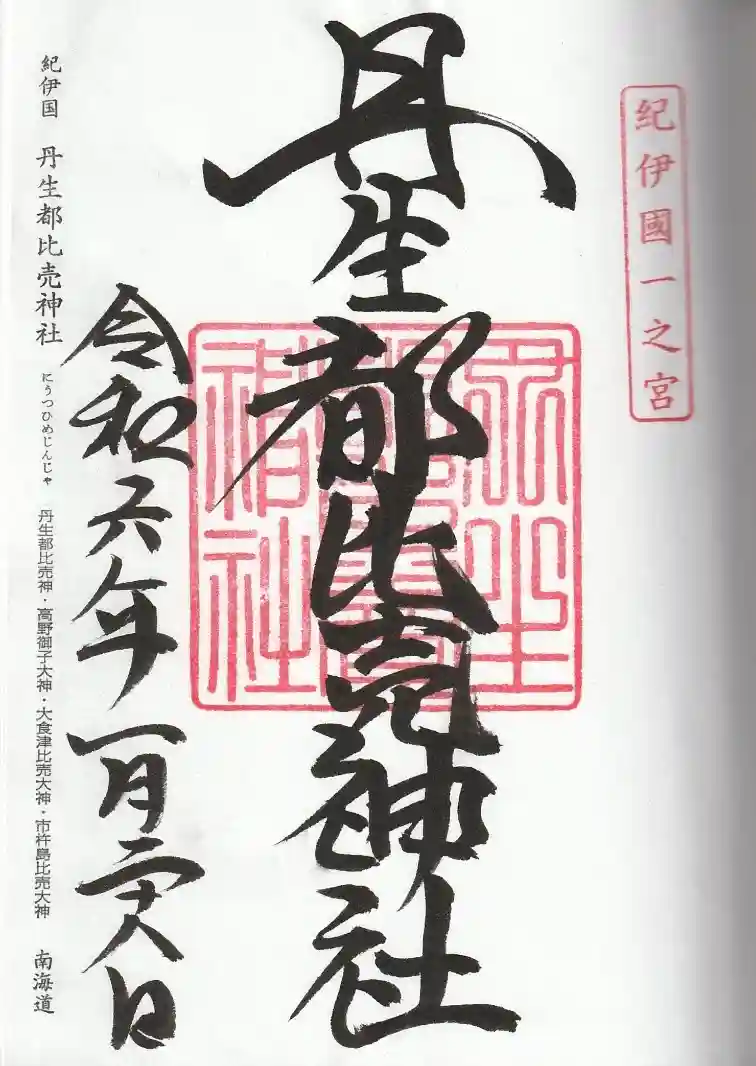 紀伊國一之宮
丹生都比売神社
丹生
神社
令和六年一月二十八日
紀伊国 丹生都比売神社 にうつひめじんじゃ 丹生都比売神・高野御子大神・大食津比売大神・市杵島比売大神 南海道